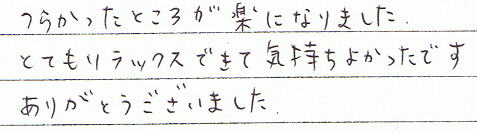 つらかったところが楽になりました.
とてもリラックスできて気持ちよかったです
ありがとうございました.